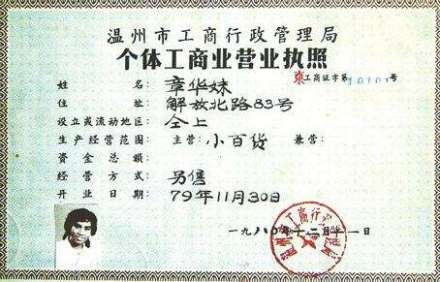 温州市工商行政管理局
个体工商业营业执照
东工商证字第10101号
姓名：章华妹
住址：解放北路83号
设立或流动地区：仝上
生产经营范围：主营：小百货 兼营：
资金总额：
经营方式：另售
开业日期：79年11月30日
一九八〇年十二月十一日
温州市工商行政管理局